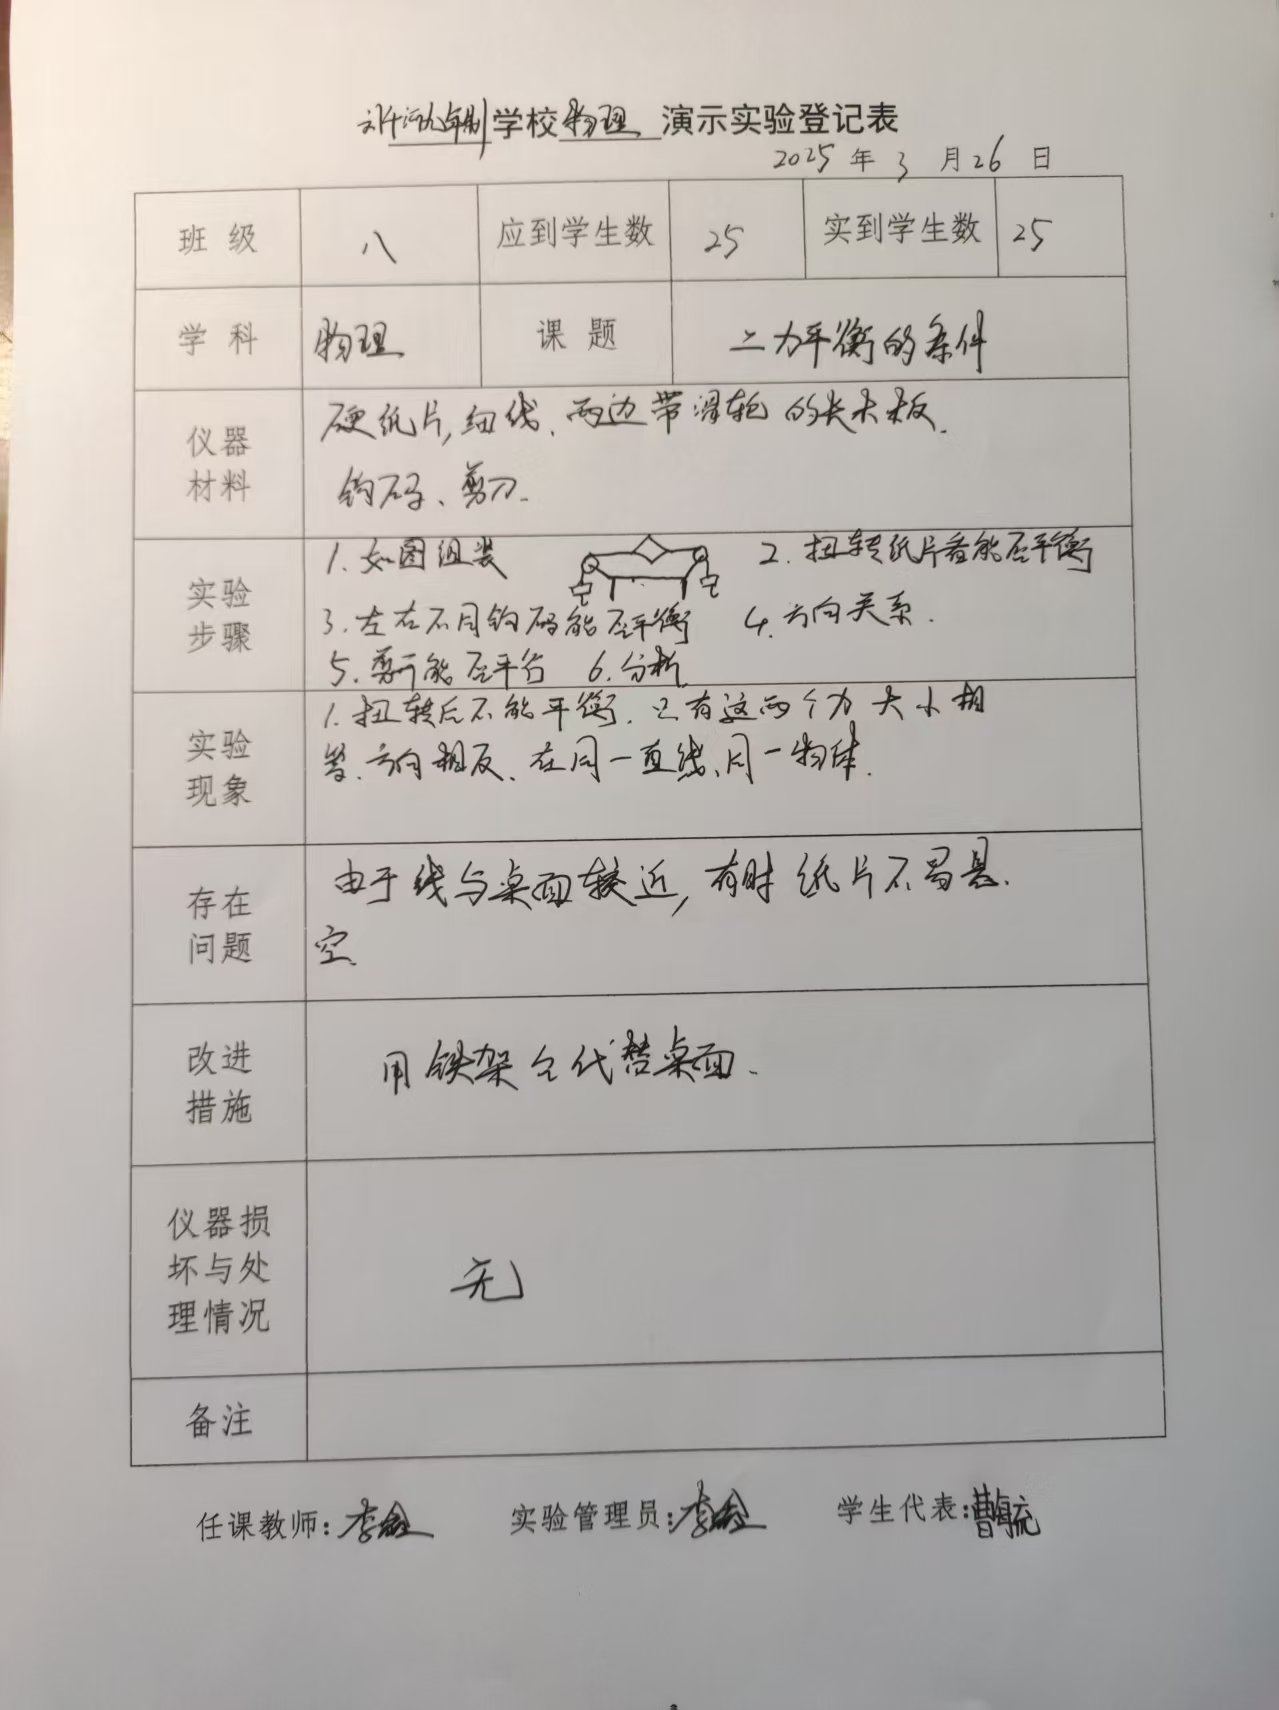 九年制学校物理 演示实验登记表
2025 年 3 月 26 日
班 级 八 应到学生数 25 实到学生数 25
学 科 物理 课 题 二力平衡的条件
仪器材料 硬纸片,细线、两边带滑轮的长木板、
钩码、剪刀.
实验步骤 1.如图组装 2.扭转纸片看能否平衡
3.左右不同钩码能否平衡 4.方向关系.
5.剪开能否平行 6.分析
实验现象 1.扭转后不能平衡.只有这两个力大小相
等.方向相反、在同一直线、同一物体.
存在问题 由于线与桌面较近,有时纸片不易悬
空.
改进措施 用铁架仝代替桌面.
仪器损坏与处理情况 无
备注
任课教师: 实验管理员: 学生代表:曹